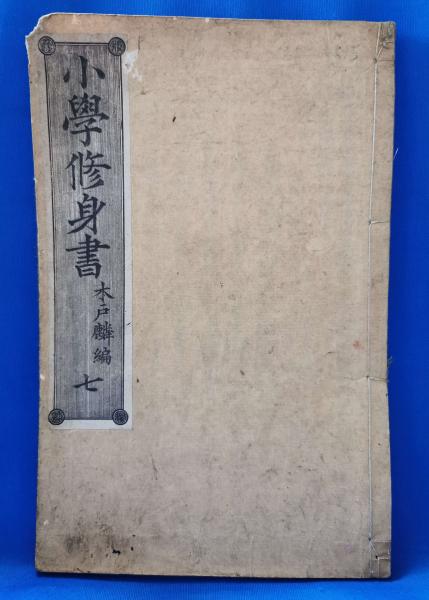 小學修身書
木戸麟編
七